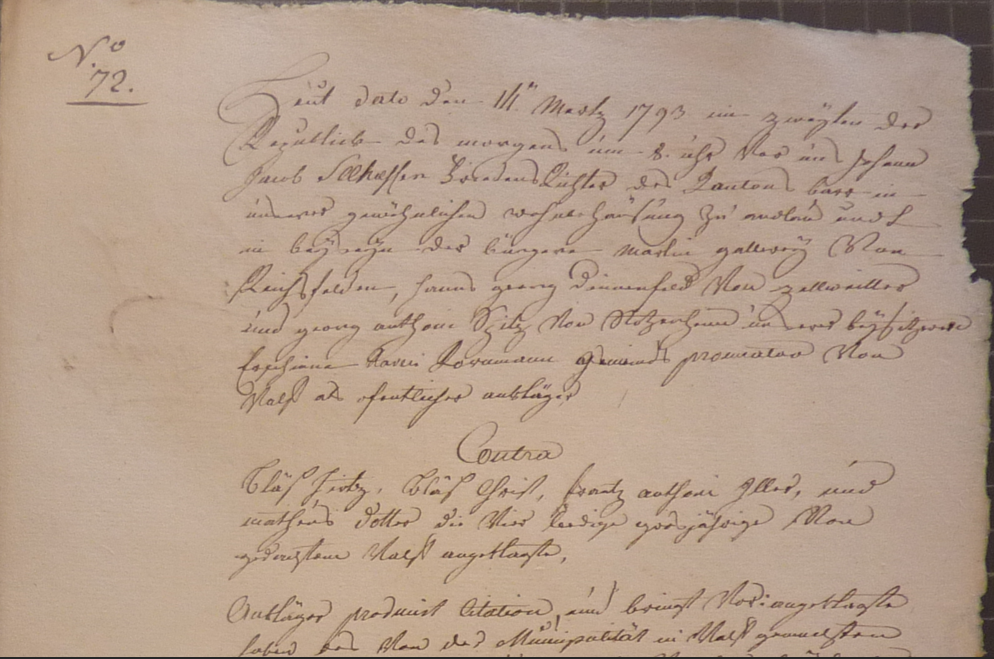 N.o
72.
Heut dato den 14.n Martz 1793 im zweyten der
Republick des morgens um 8. uhr Vor uns Johann
Jacob Fridens Richter des Cantons barr in
unserer gewöhnlichen wohnbehausung zu andlau und
in beyseyn der bürgere Martin Von
Reichsfelden, hanns georg Dannenfels Von zellweiller
und georg anthoni Spitz Von Stotzenheim unserer beysitzeren
Erschiene Xavri Kornmann gemeinds procurator Von
Valff als öfentlicher ankläger
Contra
Bläs Fritz, Bläs Christ, frantz anthoni Iller, und
matheus Dotter die Vier ledige grosjährige Von
gedachtem Valff angeklagte,
Ankläger producirt Citation, und bringt Vor: angeklagte
haben des Von der Municipalität in Valff gemachten